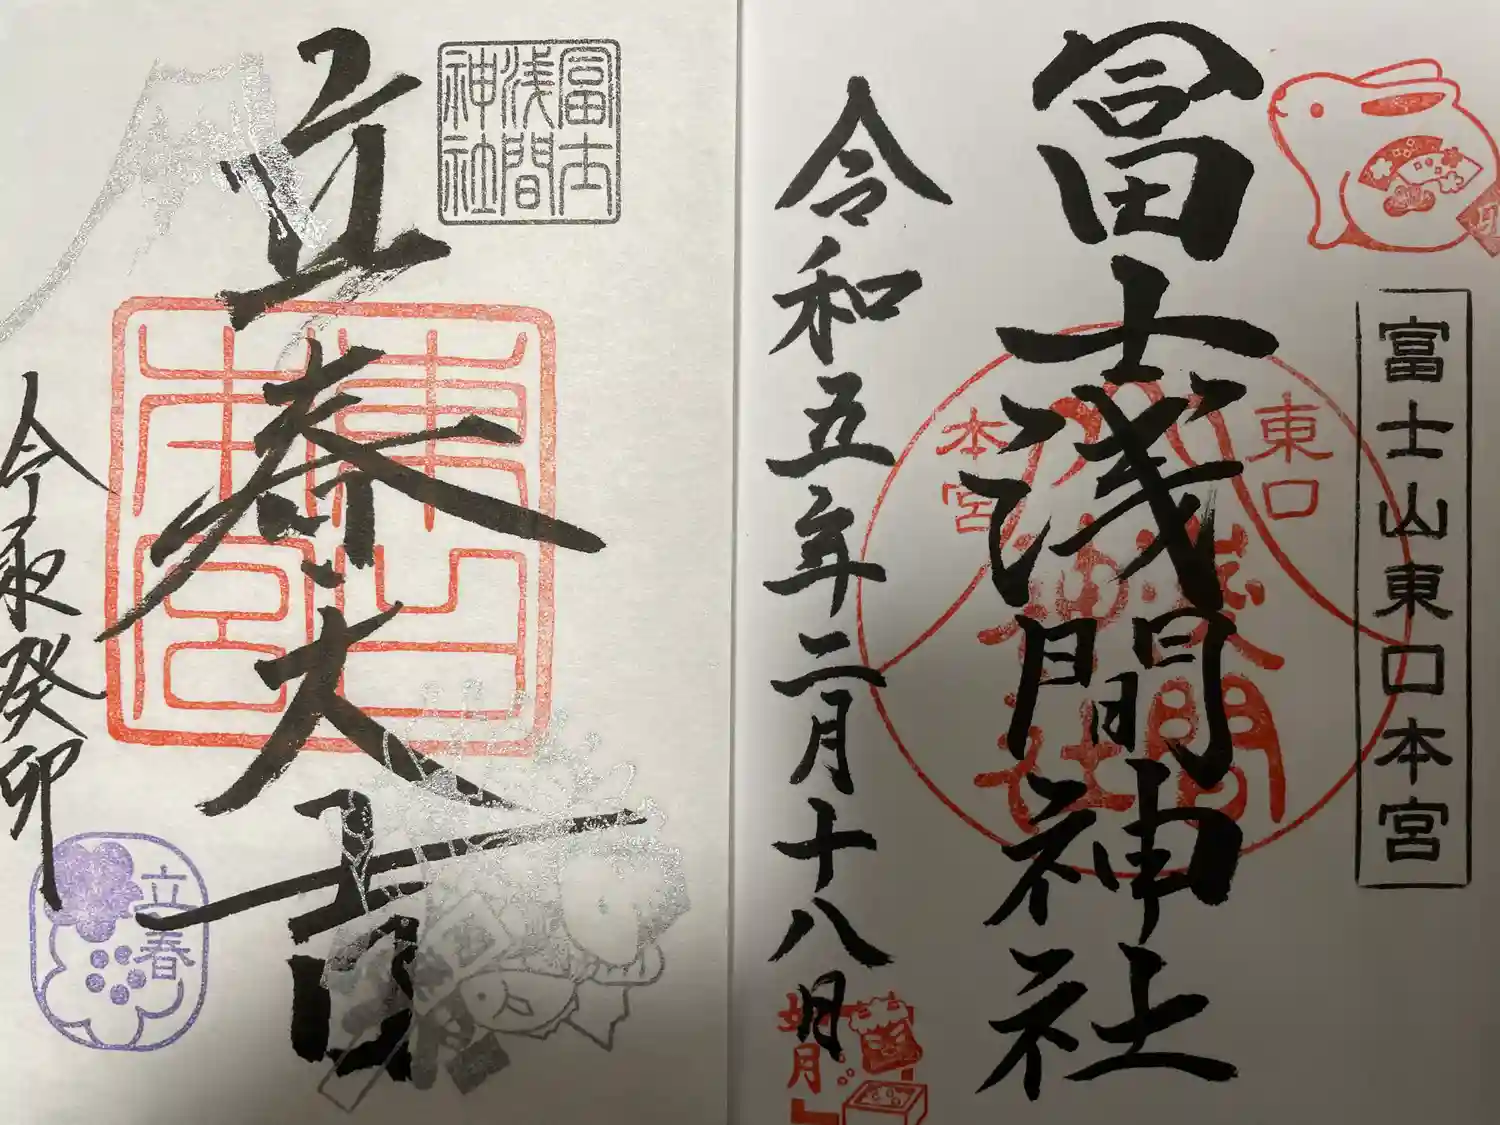 富士山東口本宮
冨士浅間神社
東口
本宮
浅間
神社
卯
令和五年二月十八日
如月
冨士
浅間
神社
立春大吉
東口
本宮
令和癸卯
立春